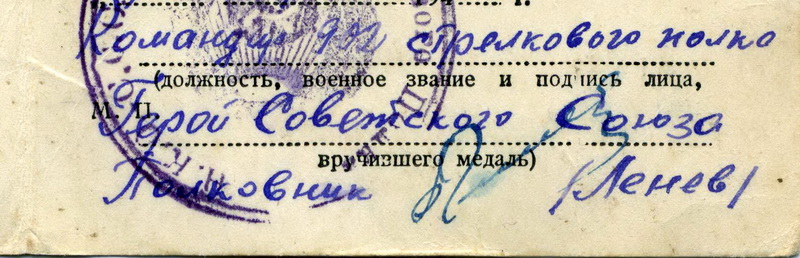 Командир 932 стрелкового полка
(должность, военное звание и подпись лица,
М. П.
Герой Советского Союза
вручившего медаль)
Полковник (Ленев)